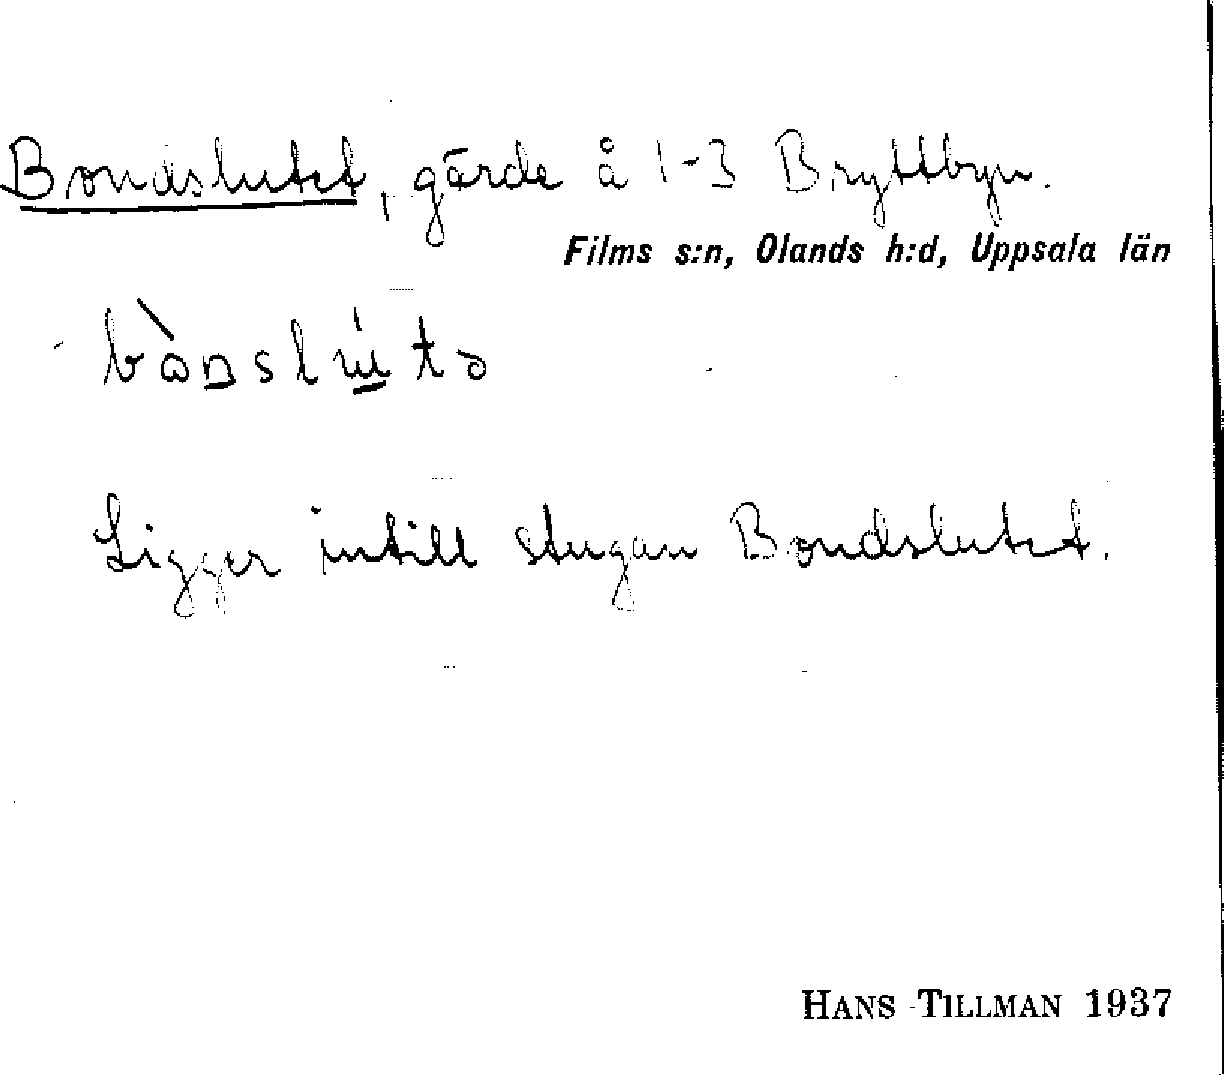 Bondslutet, gärde å 1-3 Bryttbyn.
Films s:n, Olands h:d, Uppsala län
Ligger intill stugan Bondslutet.
HANS TILLMAN 1937